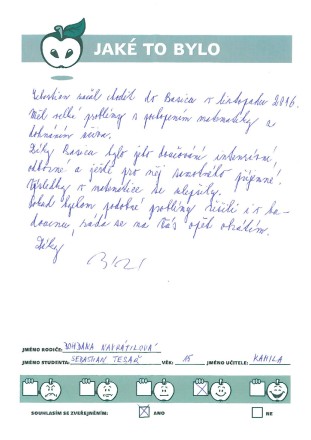 JAKÉ TO BYLO
Sebastian začal chodit do Basicu v listopadu 2016.
Měl velké problémy s pochopením matematiky a
doháněním učiva.
Díky Basicu bylo jeho doučování intenzivní,
odborné a ještě pro něj samotného příjemné.
Výsledky v matematice se zlepšily.
Pokud bychom podobné problémy řešili i v bu-
doucnu, ráda se na Vás opět obrátím.
Díky
JMÉNO RODIČE: BOHDANA NAVRÁTILOVÁ
JMÉNO STUDENTA: SEBASTIAN TESAŘ VĚK: 15 JMÉNO UČITELE: KAMILA
SOUHLASÍM SE ZVEŘEJNĚNÍM: ANO NE